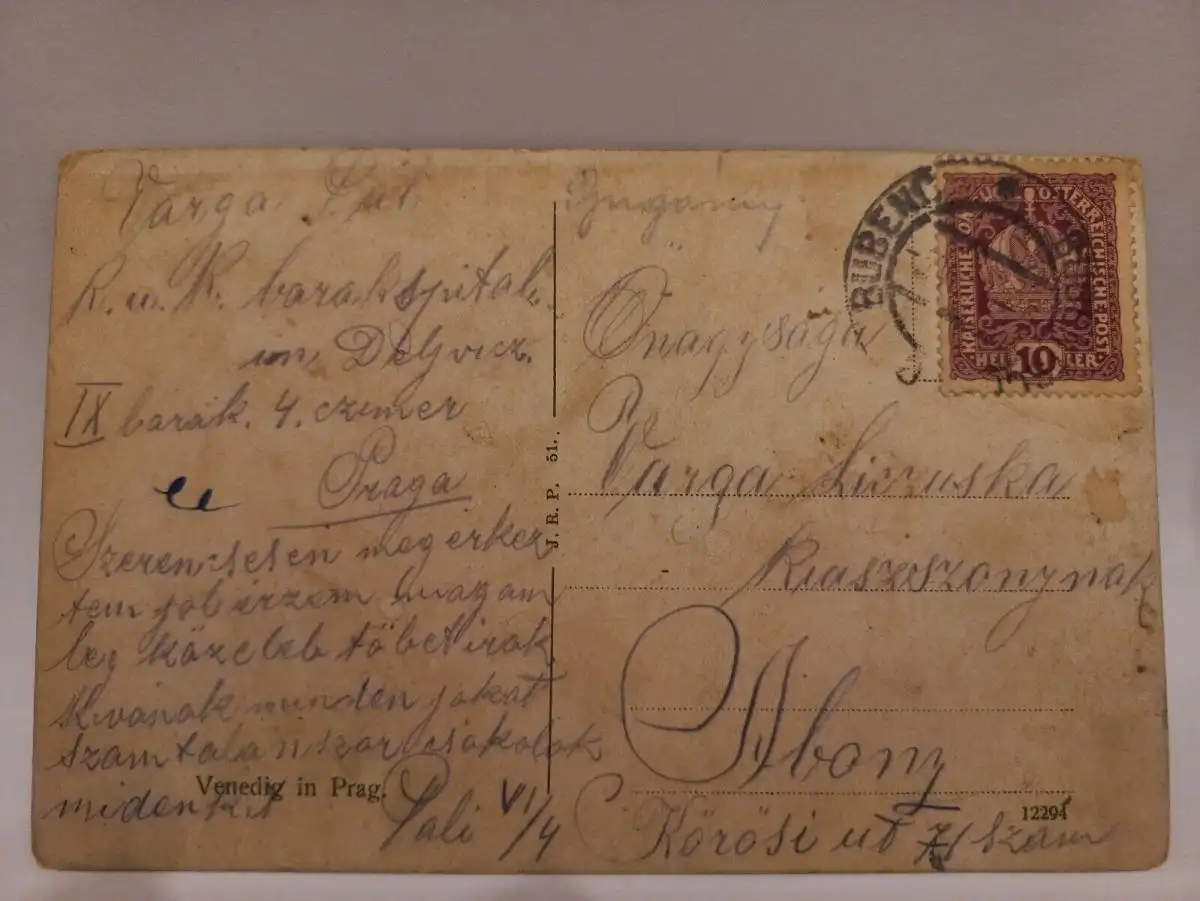 Varga
K. u. K. barakspital.
im Dejvicz.
IX barak. 4. czimer
Praga
Szerencsesen megerkez
tem jol erzem magam
leg közeleb töbet irok
Kivanok minden jokat
szamtalanszor csokolok
midenkit Pali VI/4
Venedig in Prag.
J. R. P. 51.
BUBENČ
KAISERLICHE KÖN ÖSTERREICHISCHE POST
HELLER 10
Önagysága
Varga
Kiaszszonynak
Abony
12294
Körösi ut szám